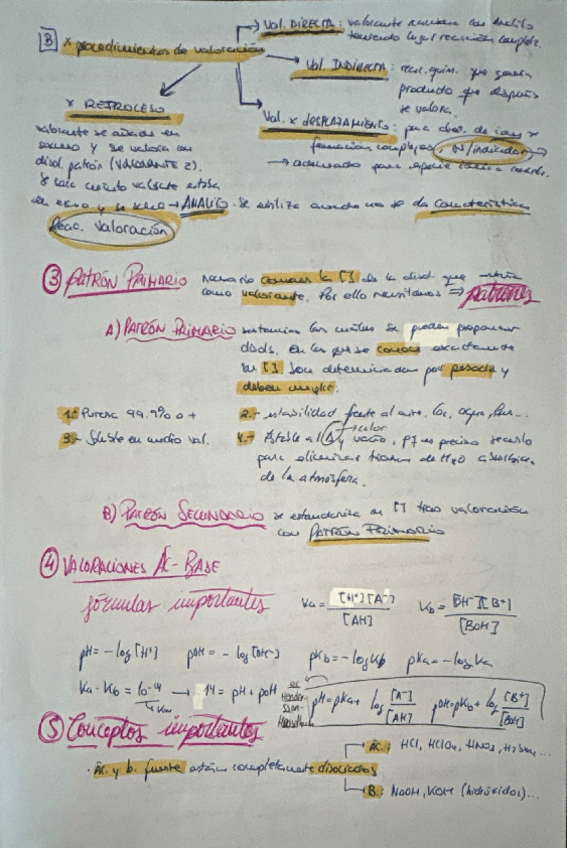 B * procedimientos de valoración
Val. DIRECTA: valorante reacciona con analito
teniendo lugar reacción completa.
Val. INDIRECTA: reac. quím. que genera
producto que después
se valora.
Val. x DESPLAZAMIENTO: para
formación complejos,
→ adecuado para
x RETROCESO
valorante se añade en
exceso y se valora con
disol. patrón (VALORANTE 2).
Se calc cuánto valorante
en exceso y → ANALITO. Se utiliza cuando no se da característica
reac. valoración
③ PATRÓN PRIMARIO necesario conocer la [] de la disol. que
como valorante. Por ello necesitamos ⇒ patrones
A) PATRÓN PRIMARIO sustancias las cuales se pueden preparar
disols. en las que se conoce
las []. Son determinadas por pesada y
deben cumplir.
1.- Pureza 99.9% o +
2.- estabilidad frente al aire, agua,
3.- Soluble en medio val.
calor
4.- Estable al Δ y vacío, pq es preciso secarlo
para eliminar trazas de H2O
de la atmósfera.
B) PATRÓN SECUNDARIO se estandariza su [] tras valoración
con PATRÓN PRIMARIO
④ VALORACIONES ÁC-BASE
fórmulas importantes
Ka = [H+][A-] / [AH]
Kb = [OH-][B+] / [BOH]
pH = -log[H+] pOH = -log[OH-] pKb = -log Kb pKa = -log Ka
Ka · Kb = 10^-14 → 14 = pH + pOH
Kw
Henderson-Hasselbach
pH = pKa + log [A-]/[AH] pOH = pKb + log [B+]/[BOH]
⑤ Conceptos importantes
· Ác. y b. fuerte están completamente disociados
Ác.: HCl, HClO4, HNO3, H2SO4...
B.: NaOH, KOH (hidróxidos)...